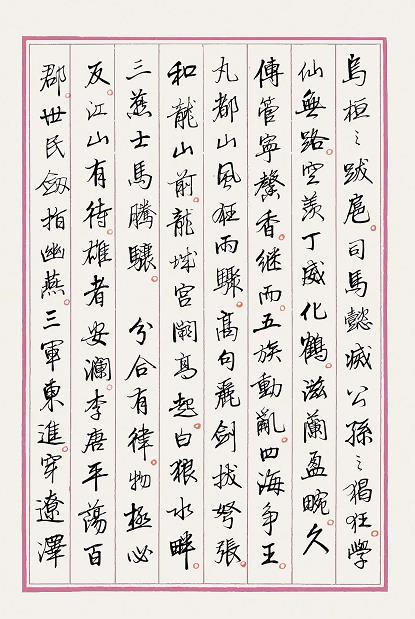 烏桓之跋扈。司馬懿滅公孫之猖狂。學
仙無路。空羨丁威化鶴。滋蘭盈畹。久
傳管寧馨香。繼而。五族動亂。四海爭王。
丸都山風狂雨驟。高句麗劍拔弩張。
和龍山前。龍城宮闕高起。白狼水畔。
三燕士馬騰驤。 分合有律。物極必
反。江山有待。雄者安瀾。李唐平蕩百
郡。世民劔指幽燕。三軍東進。穿遼澤